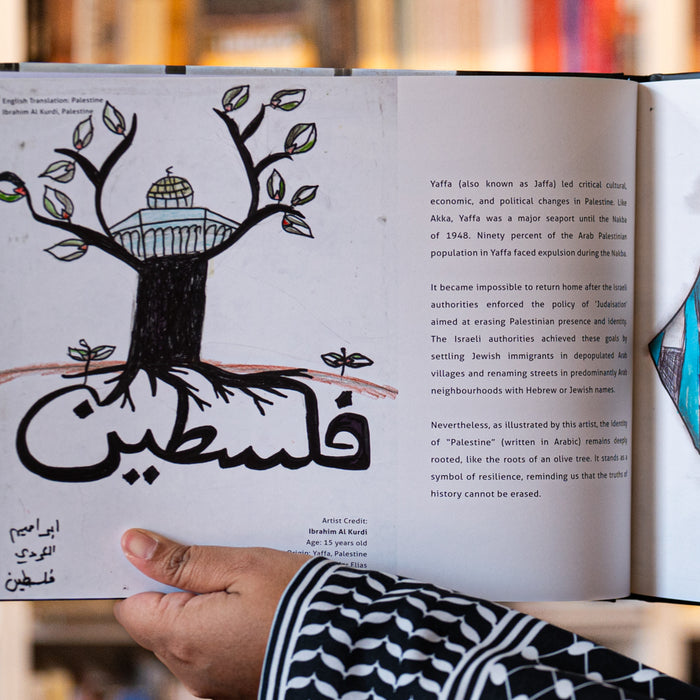 English Translation: Palestine
Ibrahim Al Kurdi, Palestine
فلسطين
ابراهيم
الكردي
فلسطين
Artist Credit:
Ibrahim Al Kurdi
Age: 15 years old
Origin: Yaffa, Palestine
Elias
Yaffa (also known as Jaffa) led critical cultural,
economic, and political changes in Palestine. Like
Akka, Yaffa was a major seaport until the Nakba
of 1948. Ninety percent of the Arab Palestinian
population in Yaffa faced expulsion during the Nakba.
It became impossible to return home after the Israeli
authorities enforced the policy of 'Judaisation'
aimed at erasing Palestinian presence and identity.
The Israeli authorities achieved these goals by
settling Jewish immigrants in depopulated Arab
villages and renaming streets in predominantly Arab
neighbourhoods with Hebrew or Jewish names.
Nevertheless, as illustrated by this artist, the identity
of "Palestine" (written in Arabic) remains deeply
rooted, like the roots of an olive tree. It stands as a
symbol of resilience, reminding us that the truths of
history cannot be erased.